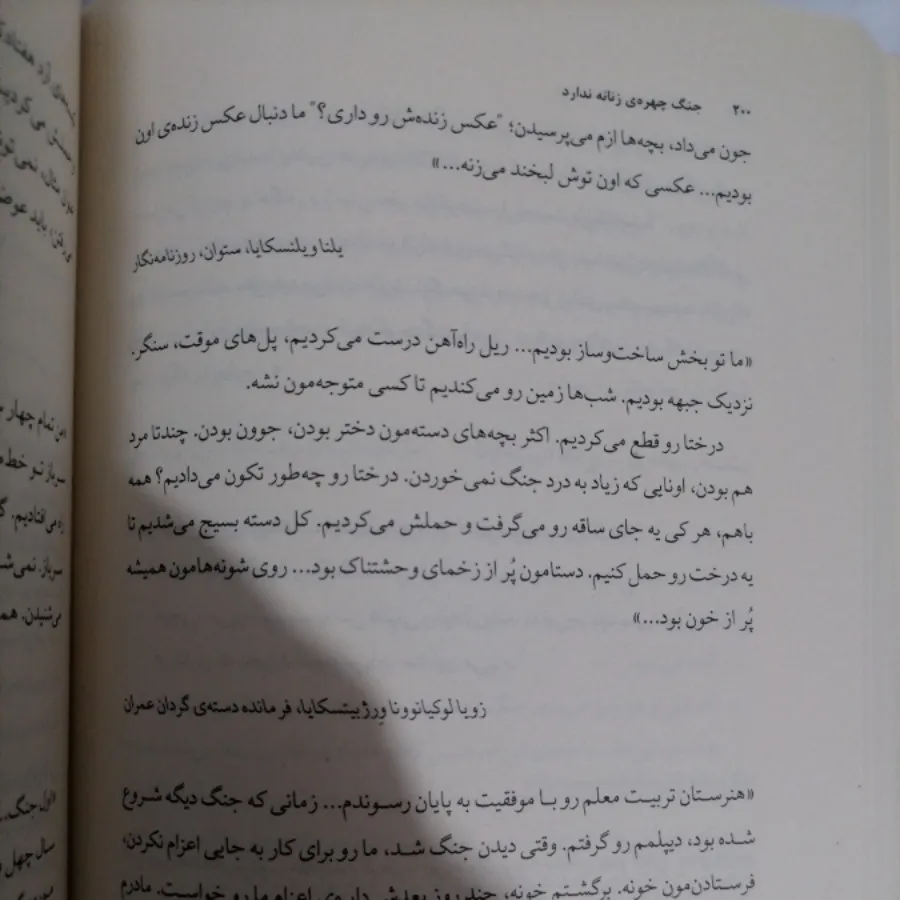 ۲۰۰ جنگ چهره‌ی زنانه ندارد
جون می‌داد، بچه‌ها ازم می‌پرسیدن؛ "عکس زنده‌ش رو داری؟" ما دنبال عکس زنده‌ی اون
بودیم... عکسی که اون توش لبخند می‌زنه...»
یلنا ویلنسکایا، ستوان، روزنامه‌نگار
«ما تو بخش ساخت‌وساز بودیم... ریل راه‌آهن درست می‌کردیم، پل‌های موقت، سنگر.
نزدیک جبهه بودیم. شب‌ها زمین رو می‌کندیم تا کسی متوجه‌مون نشه.
درختا رو قطع می‌کردیم. اکثر بچه‌های دسته‌مون دختر بودن، جوون بودن. چندتا مرد
هم بودن، اونایی که زیاد به درد جنگ نمی‌خوردن. درختا رو چه‌طور تکون می‌دادیم؟ همه
باهم، هر کی یه جای ساقه رو می‌گرفت و حملش می‌کردیم. کل دسته بسیج می‌شدیم تا
یه درخت رو حمل کنیم. دستامون پُر از زخمای وحشتناک بود... روی شونه‌هامون همیشه
پُر از خون بود...»
زویا لوکیانوونا وِرژبیتسکایا، فرمانده دسته‌ی گردان عمران
«هنرستان تربیت معلم رو با موفقیت به پایان رسوندم... زمانی که جنگ دیگه شروع
شده بود، دیپلمم رو گرفتم. وقتی دیدن جنگ شد، ما رو برای کار به جایی اعزام نکردن،
فرستادن‌مون خونه. برگشتم خونه، چند روز بعدش داره‌ی اعزام ما رو خواست. مادرم
من تمام چهار
سرباز تو خط
ره می‌افتادیم.
سرباز. نمی‌شد
می‌شنیدن.
«اول جنگ...
سال چهل و